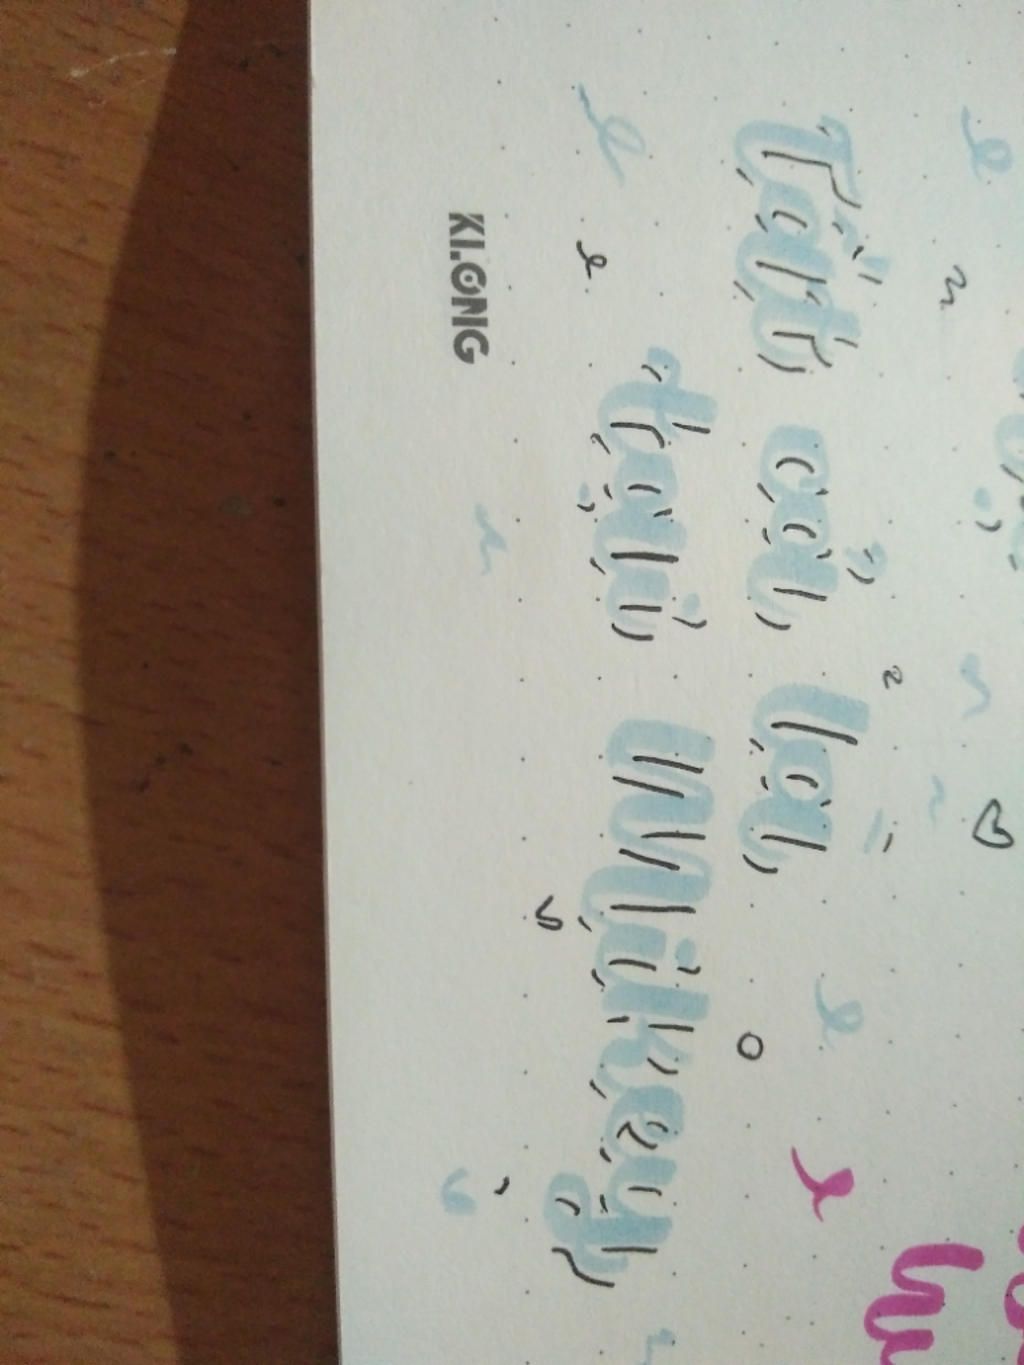 Tất cả là
tại Mikey
KLONG